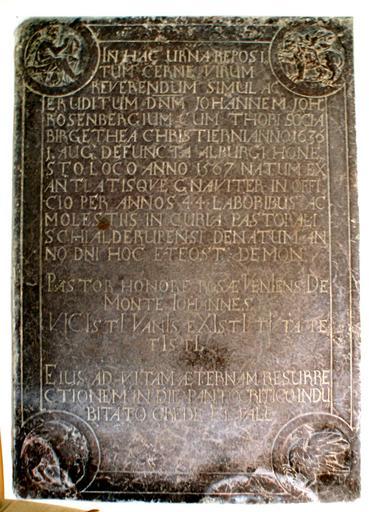 IN HAC URNA REPOSI
TUM CERNE VIRUM
REVERENDUM SIMUL AC
ERUDITUM DNM JOHANNEM JOH
ROSENBERGIUM CUM THORI SOCIA
BIRGETHEA CHRISTIERNI ANNO 1636
AUG DEFUNCTA ALBURGI HONE
STO LOCO ANNO 1567 NATUM EX
ANTLATISQVE GNAVITER IN OFFI
CIO PER ANNOS 44 LABORIBUS AC
MOLESTIIS IN CURIA PASTORALI
SCHIALDERUPENSI DENATUM AN
NO DNI HOC
PASTOR HONORE ROSÆ VENIENS DE
MONTE JOHANNES
VICISTI VANIS EXISTI
TISTI
EIUS AD VITAM ÆTERNAM RESURRE
CTIONEM IN DIE PANTOCRITICO INDU
BITATO CREDE ET VALE